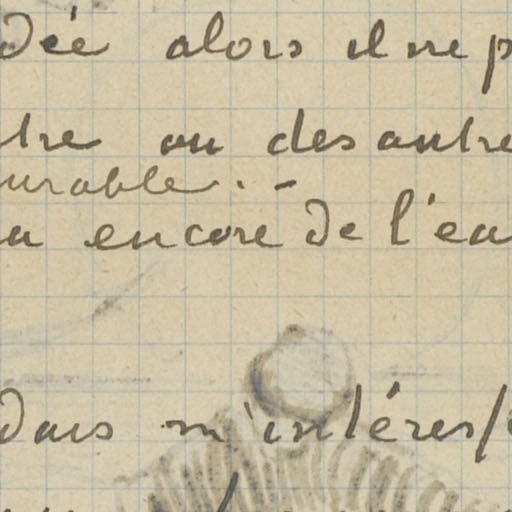 dée alors il ne p
tre ou des autre
urable. -
a encore de l'ea
dans m'intéres